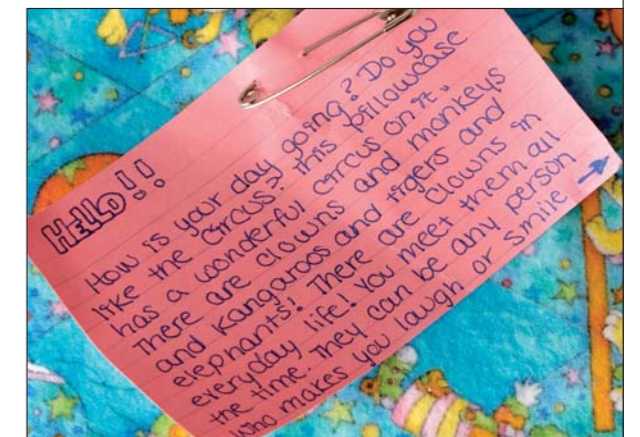 HELLO!!
How is your day going? Do you
like the CIRCUS? This pillowcase
has a wonderful circus on it.
There are clowns and monkeys
and Kangaroos and tigers and
elephants! There are clowns in
everyday life! You meet them all
the time. They can be any person
who makes you laugh or smile